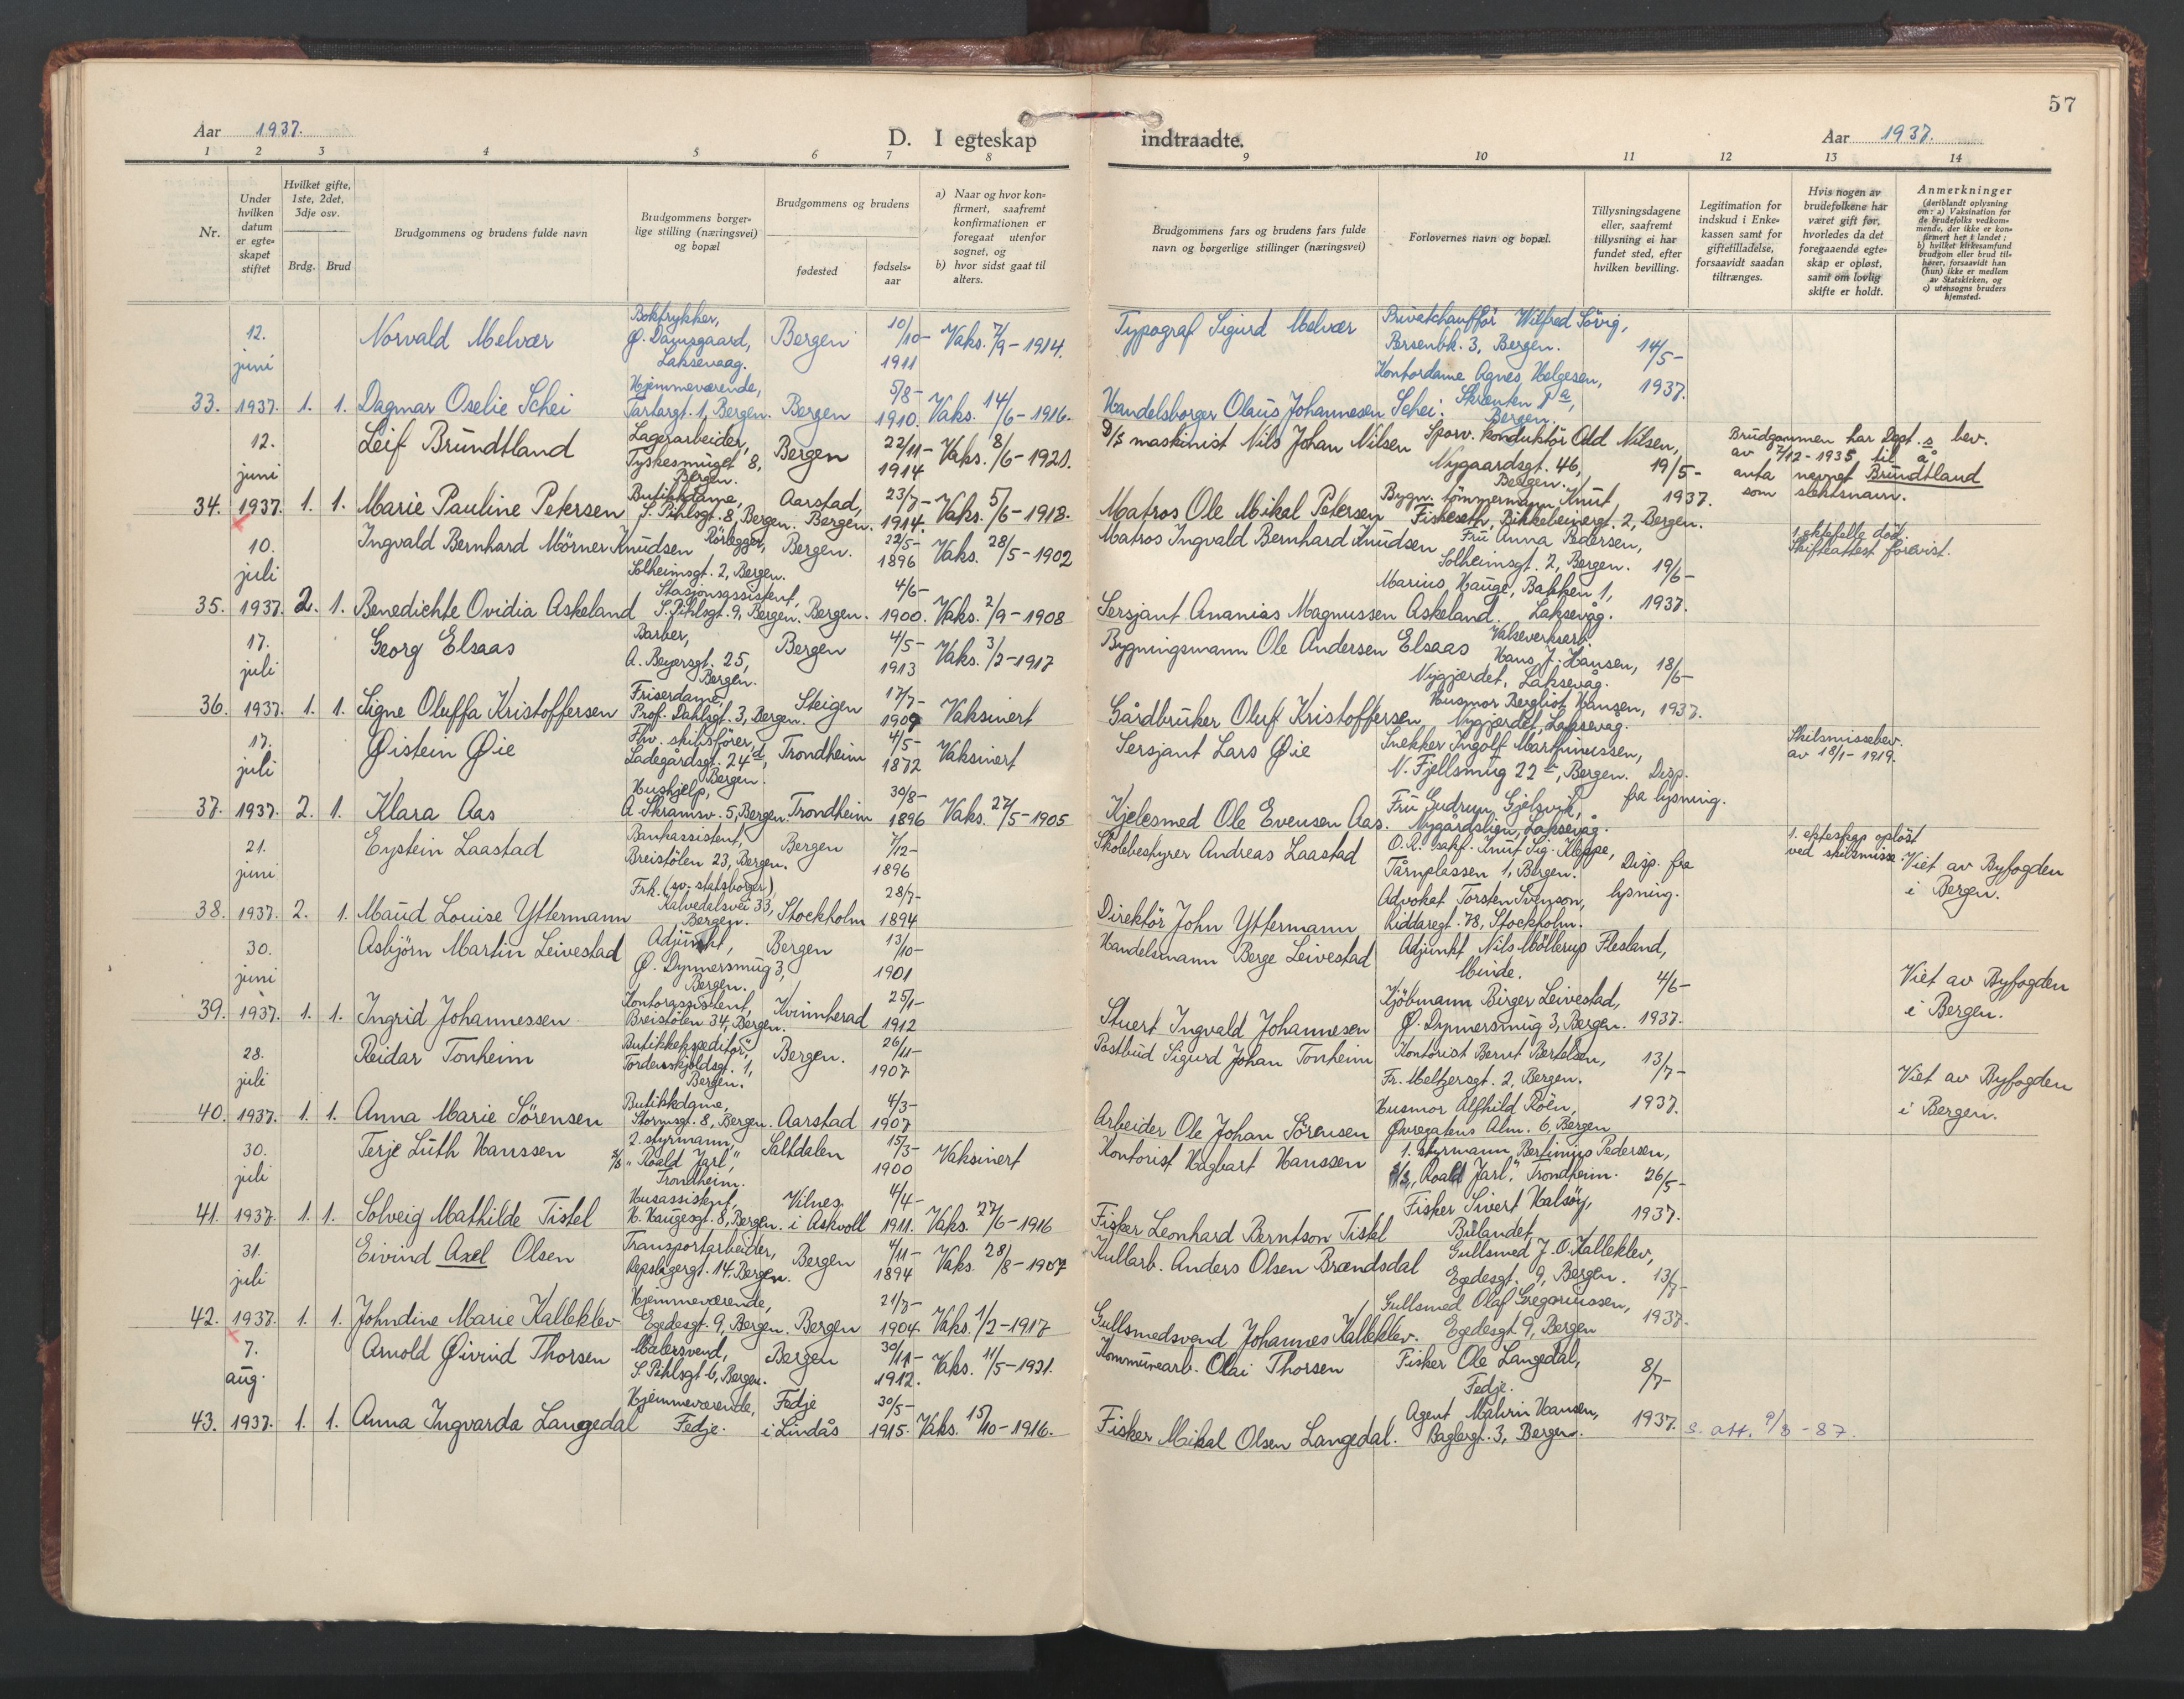 57
Aar 1937.
D. I egteskap indtraadte.
Aar 1937.
1 2 3 4 5 6 7 8 9 10 11 12 13 14
Nr.
Under hvilken datum er egte-skapet stiftet
Hvilket gifte, 1ste, 2det, 3dje osv.
Brdg. Brud
Brudgommens og brudens fulde navn
Brudgommens borger-lige stilling (næringsvei) og bopæl
Brudgommens og brudens
fødested
fødsels-aar
a) Naar og hvor kon-firmert, saafremt konfirmationen er foregaat utenfor sognet, og
b) hvor sidst gaat til alters.
Brudgommens fars og brudens fars fulde navn og borgerlige stillinger (næringsvei)
Forlovernes navn og bopæl.
Tillysningsdagene eller, saafremt tillysning ei har fundet sted, efter hvilken bevilling.
Legitimation for indskud i Enke-kassen samt for giftetilladelse, forsaavidt saadan tiltrænges.
Hvis nogen av brudefolkene har været gift før, hvorledes da det foregaaende egte-skap er opløst, samt om lovlig skifte er holdt.
Anmerkninger (deriblandt oplysning om: a) Vaksination for de brudefolks vedkom-mende, der ikke er kon-firmert her i landet; b) hvilket kirkesamfund brudgom eller brud til-hører, forsaavidt han (hun) ikke er medlem av Statskirken, og c) utensogns bruders hjemsted.
12. juni Norvald Melvær Boktrykker, Ø. Damsgaard, Laksevaag. Bergen 10/10-1911 Vaks. 7/9-1914. Typograf Sigurd Melvær Privatchauffør Wilfred Sövig, Persenbk. 3, Bergen. 14/5-
33. 1937. 1. 1. Dagmar Oselie Schei Hjemmeværende, Tartargt. 1, Bergen. Bergen 5/8-1910. Vaks. 14/6-1916. Handelsborger Olaus Johannesen Schei. Kontordame Agnes Helgesen, Skrenten 7a, Bergen. 1937.
12. juni Leif Brundtland Lagerarbeider, Tyskesmuget 8, Bergen. Bergen 22/11-1914 Vaks. 8/6-1920. D/S maskinist Nils Johan Nilsen Sporv. konduktör Odd Nilsen, Nygaardsgt. 46, Bergen. 19/5- Brudgommen har Dept.s bev. av 7/12-1935 til å anta navnet Brundtland som slektsnavn.
34. 1937. 1. 1. Marie Pauline Petersen Butikkdame, S. Pihlsgt. 8, Bergen. Aarstad, Bergen. 23/7-1914. Vaks. 5/6-1918. Matros Ole Mikal Petersen Bygn. tömmermann Knut Fiskeseth, Birkebeinergt. 2, Bergen. 1937.
10. juli Ingvald Bernhard Mörner Knudsen Rörlegger, Solheimsgt. 2, Bergen. Bergen. 22/5-1896 Vaks. 28/5-1902 Matros Ingvald Bernhard Knudsen Fru Anna Pedersen, Solheimsgt. 2, Bergen. 19/6- 1. ektefelle död. Skifteattest forevist.
35. 1937. 2. 1. Benedichte Ovidia Askeland Stasjonsassistent, S. Pihlsgt. 9, Bergen. Bergen. 4/6-1900. Vaks. 2/9-1908 Sersjant Ananias Magnussen Askeland. Marius Hauge, Bakken 1, Laksevåg. 1937.
17. juli Georg Elsaas Barber, A. Beyersgt. 25, Bergen. Bergen 4/5-1913 Vaks. 3/2-1917 Bygningsmann Ole Andersen Elsaas Valseverksarb. Hans J. Hansen, Nygjerdet, Laksevåg. 18/6-
36. 1937. 1. 1. Signe Oluffa Kristoffersen Friserdame, Prof. Dahlsgt. 3, Bergen. Steigen 17/7-1909 Vaksinert Gårdbruker Oluf Kristoffersen Husmor Bergliot Hansen, Nygjerdet, Laksevåg. 1937.
17. juli Øistein Øie Fhv. skibsförer, Ladegårdsgt. 24d, Bergen. Trondheim 4/5-1872 Vaksinert Sersjant Lars Øie Snekker Ingolf Marthinussen, N. Fjellsmug 22b, Bergen. Disp. Skilsmissebev. av 18/1-1919.
37. 1937. 2. 1. Klara Aas Hushjelp, A. Skramsv. 5, Bergen. Trondheim 30/8-1896 Vaks. 27/5-1905 Kjelesmed Ole Evensen Aas. Fru Gudrun Gjelsvik, Nygårdslien, Laksevåg. fra lysning.
21. juni Eystein Laastad Bankassistent, Breistölen 23, Bergen. Bergen 7/12-1896 Skolebestyrer Andreas Laastad O.R. sakf. Knut Sig. Kleppe, Tårnplassen 1, Bergen. Disp. fra 1. ekteskap oplöst ved skilsmisse. Viet av Byfogden i Bergen.
38. 1937. 2. 1. Maud Louise Yttermann Frk. (sv. statsborger) Kalvedalsvei 33, Bergen. Stockholm 28/7-1894 Direktör John Yttermann Advokat Torsten Svenson, Riddaregt. 78, Stockholm. lysning.
30. juni Asbjörn Martin Leivestad Adjunkt, Ø. Dynnersmug 3, Bergen. Bergen 13/10-1901 Handelsmann Berge Leivestad Adjunkt Nils Möllerup Flesland, Minde. 4/6- Viet av Byfogden i Bergen.
39. 1937. 1. 1. Ingrid Johannessen Kontorassistent, Breistölen 34, Bergen. Kvinnherad 25/1-1912 Stuert Ingvald Johannesen Kjöbmann Birger Leivestad, Ø. Dynnersmug 3, Bergen. 1937.
28. juli Reidar Tonheim Butikkekspeditör, Tordenskjoldsgt. 1, Bergen. Bergen. 26/11-1907 Postbud Sigurd Johan Tonheim Kontorist Bernt Bertelsen, Fr. Meltzersgt. 2, Bergen. 13/7- Viet av Byfogden i Bergen.
40. 1937. 1. 1. Anna Marie Sörensen Butikkdame, Stormsgt. 8, Bergen. Aarstad 4/3-1907 Arbeider Ole Johan Sörensen Husmor Alfhild Roën, Øvregatens Alm. 6, Bergen 1937.
30. juli Terje Luth Hanssen 2. styrmann, S/S "Roald Jarl", Trondheim. Saltdalen 15/3-1900 Vaksinert Kontorist Hagbart Hanssen 1. styrmann Bertinius Pedersen, S/S "Roald Jarl", Trondheim. 26/5-
41. 1937. 1. 1. Solveig Mathilde Tistel Husassistent, H. Haugesgt. 8, Bergen. Vilnes i Askvoll 4/4-1911. Vaks. 27/6-1916 Fisker Leonhard Berntson Tistel Fisker Sivert Kalsöy, Bulandet. 1937.
31. juli Eivind Axel Olsen Transportarbeider, Repslagergt. 14, Bergen. Bergen 4/11-1894 Vaks. 28/8-1907 Kullarb. Anders Olsen Brændsdal Gullsmed J. O. Kalleklev, Egedesgt. 9, Bergen. 13/7-
42. 1937. 1. 1. Johndine Marie Kalleklev Hjemmeværende, Egedesgt. 9, Bergen. Bergen 21/7-1904. Vaks. 1/2-1917 Gullsmedsvend Johannes Kalleklev. Gullsmed Olaf Gregoriussen, Egedesgt 9, Bergen 1937.
7. aug. Arnold Øivind Thorsen Malersvend, S. Pihlsgt 6, Bergen. Bergen 30/11-1912. Vaks. 11/5-1921. Kommunearb. Olai Thorsen Fisker Ole Langedal, Fedje. 8/7-
43. 1937. 1. 1. Anna Ingvarda Langedal Hjemmeværende, Fedje. Fedje i Lindås 30/5-1915. Vaks. 15/10-1916. Fisker Mikal Olsen Langedal. Agent Malvin Hansen, Baglergt. 3, Bergen. 1937. s. att. 9/3-87.